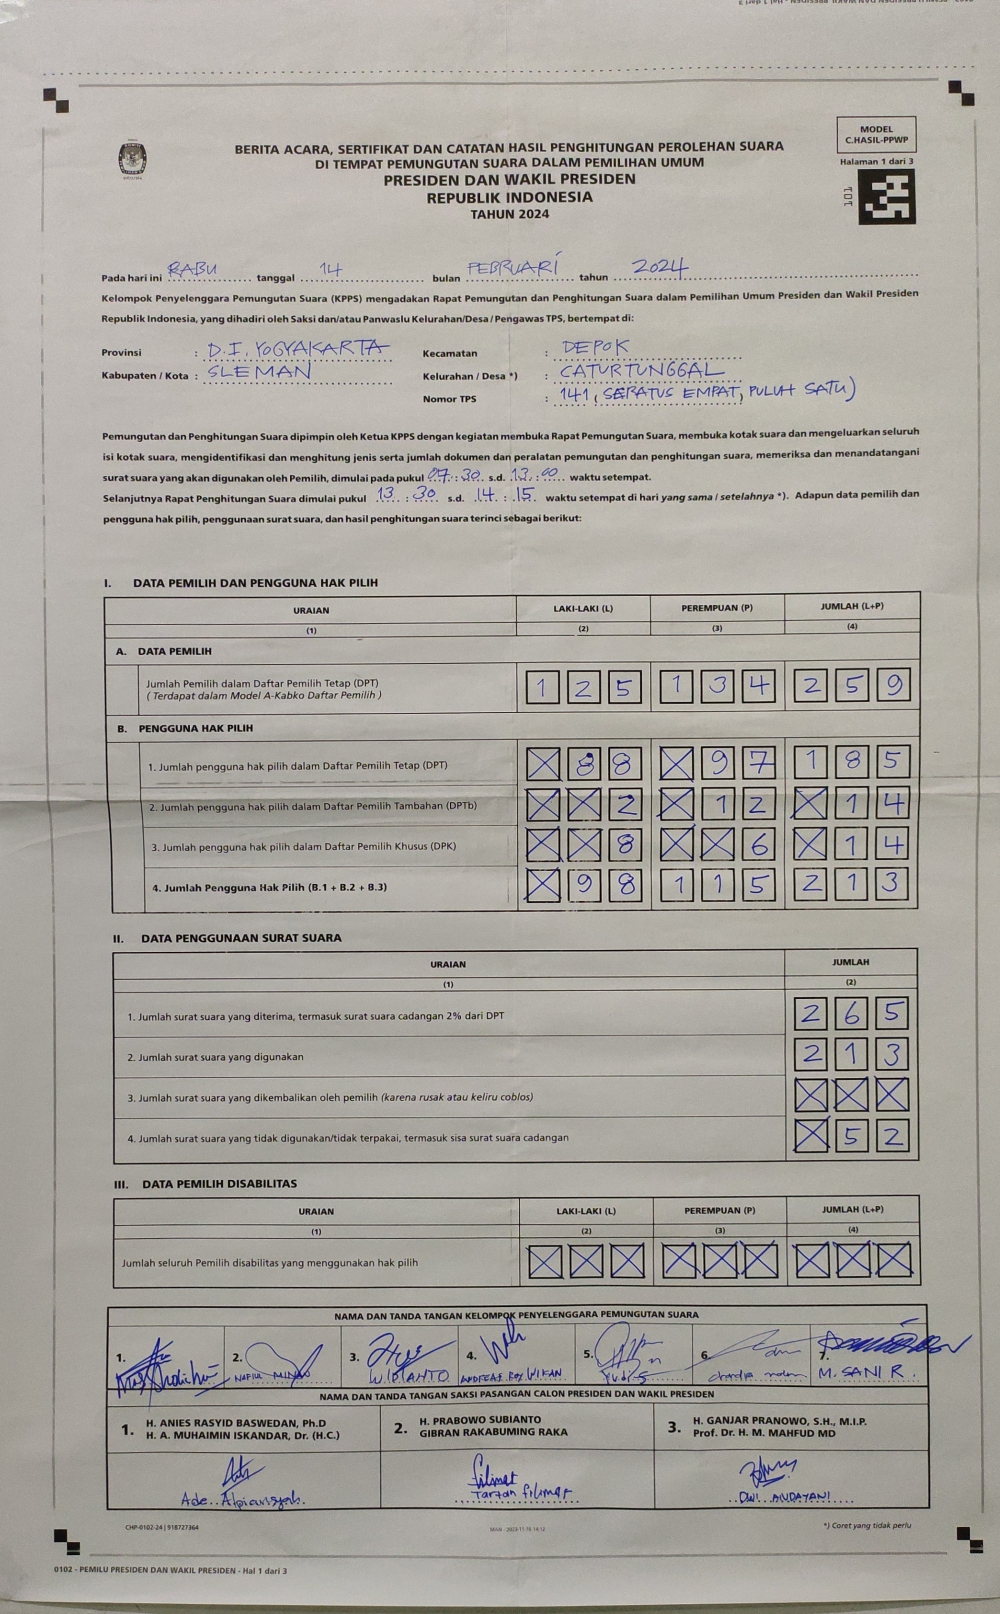 MODEL
C.HASIL-PPWP
Halaman 1 dari 3
101
BERITA ACARA, SERTIFIKAT DAN CATATAN HASIL PENGHITUNGAN PEROLEHAN SUARA
DI TEMPAT PEMUNGUTAN SUARA DALAM PEMILIHAN UMUM
PRESIDEN DAN WAKIL PRESIDEN
REPUBLIK INDONESIA
TAHUN 2024
Pada hari ini RABU tanggal 14 bulan FEBRUARI tahun 2024
Kelompok Penyelenggara Pemungutan Suara (KPPS) mengadakan Rapat Pemungutan dan Penghitungan Suara dalam Pemilihan Umum Presiden dan Wakil Presiden
Republik Indonesia, yang dihadiri oleh Saksi dan/atau Panwaslu Kelurahan/Desa / Pengawas TPS, bertempat di:
Provinsi : D.I. YOGYAKARTA Kecamatan : DEPOK
Kabupaten / Kota : SLEMAN Kelurahan / Desa *) : CATURTUNGGAL
Nomor TPS : 141 (SERATUS EMPAT PULUH SATU)
Pemungutan dan Penghitungan Suara dipimpin oleh Ketua KPPS dengan kegiatan membuka Rapat Pemungutan Suara, membuka kotak suara dan mengeluarkan seluruh
isi kotak suara, mengidentifikasi dan menghitung jenis serta jumlah dokumen dan peralatan pemungutan dan penghitungan suara, memeriksa dan menandatangani
surat suara yang akan digunakan oleh Pemilih, dimulai pada pukul 07 : 30 s.d. 13 : 00 waktu setempat.
Selanjutnya Rapat Penghitungan Suara dimulai pukul 13 : 30 s.d. 14 : 15 waktu setempat di hari yang sama / setelahnya *). Adapun data pemilih dan
pengguna hak pilih, penggunaan surat suara, dan hasil penghitungan suara terinci sebagai berikut:
I. DATA PEMILIH DAN PENGGUNA HAK PILIH
URAIAN LAKI-LAKI (L) PEREMPUAN (P) JUMLAH (L+P)
(1) (2) (3) (4)
A. DATA PEMILIH
Jumlah Pemilih dalam Daftar Pemilih Tetap (DPT) 1 2 5 1 3 4 2 5 9
( Terdapat dalam Model A-Kabko Daftar Pemilih )
B. PENGGUNA HAK PILIH
1. Jumlah pengguna hak pilih dalam Daftar Pemilih Tetap (DPT) X 8 8 X 9 7 1 8 5
2. Jumlah pengguna hak pilih dalam Daftar Pemilih Tambahan (DPTb) X X 2 X 1 2 X 1 4
3. Jumlah pengguna hak pilih dalam Daftar Pemilih Khusus (DPK) X X 8 X X 6 X 1 4
4. Jumlah Pengguna Hak Pilih (B.1 + B.2 + B.3) X 9 8 1 1 5 2 1 3
II. DATA PENGGUNAAN SURAT SUARA
URAIAN JUMLAH
(1) (2)
1. Jumlah surat suara yang diterima, termasuk surat suara cadangan 2% dari DPT 2 6 5
2. Jumlah surat suara yang digunakan 2 1 3
3. Jumlah surat suara yang dikembalikan oleh pemilih (karena rusak atau keliru coblos) X X X
4. Jumlah surat suara yang tidak digunakan/tidak terpakai, termasuk sisa surat suara cadangan X 5 2
III. DATA PEMILIH DISABILITAS
URAIAN LAKI-LAKI (L) PEREMPUAN (P) JUMLAH (L+P)
(1) (2) (3) (4)
Jumlah seluruh Pemilih disabilitas yang menggunakan hak pilih X X X X X X X X X
NAMA DAN TANDA TANGAN KELOMPOK PENYELENGGARA PEMUNGUTAN SUARA
1. 2. 3. WIDIANTO 4. 5. 6. 7. M. SANI R.
NAMA DAN TANDA TANGAN SAKSI PASANGAN CALON PRESIDEN DAN WAKIL PRESIDEN
1. H. ANIES RASYID BASWEDAN, Ph.D
H. A. MUHAIMIN ISKANDAR, Dr. (H.C.)
2. H. PRABOWO SUBIANTO
GIBRAN RAKABUMING RAKA
3. H. GANJAR PRANOWO, S.H., M.I.P.
Prof. Dr. H. M. MAHFUD MD
Ade Alpiansyah
DWI ANDAYANI
CHP-0102-24 | 918727364
*) Coret yang tidak perlu
0102 - PEMILU PRESIDEN DAN WAKIL PRESIDEN - Hal 1 dari 3